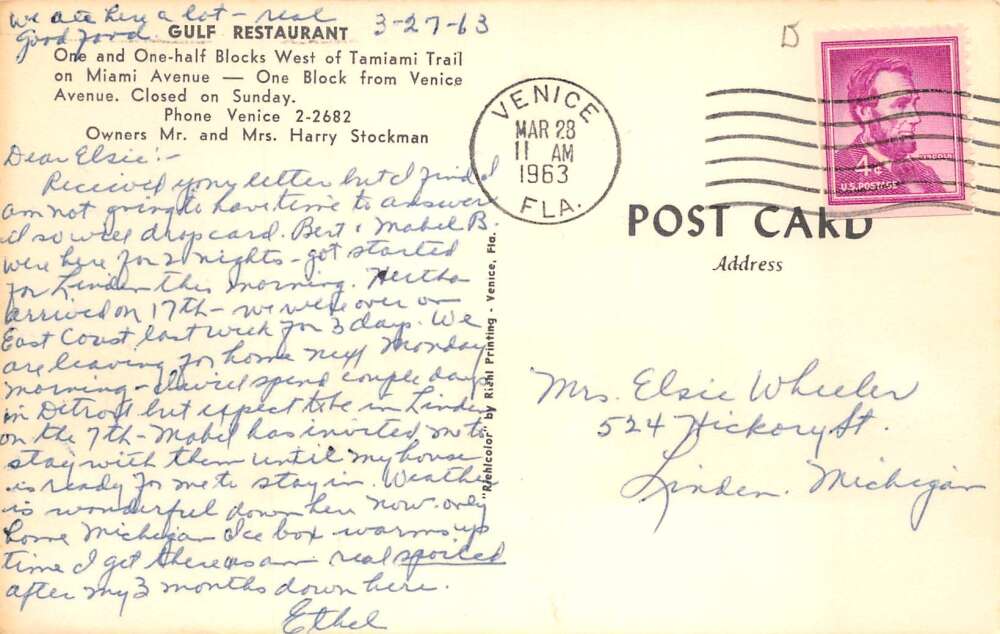 We ate here a lot - real
good food.
3-27-63
D
GULF RESTAURANT
One and One-half Blocks West of Tamiami Trail
on Miami Avenue — One Block from Venice
Avenue. Closed on Sunday.
Phone Venice 2-2682
Owners Mr. and Mrs. Harry Stockman
Dear Elsie:-
Received your letter but I find I
am not going to have time to answer
it so will drop card. Bert & Mabel B.
were here for 2 nights - got started
for Linden this morning. Hertha
arrived on 17th - we were over on
East Coast last week for 3 days. We
are leaving for home next Monday
morning - I will spend couple days
in Detroit but expect to be in Linden
on the 7th - Mabel has invited me to
stay with them until my house
is ready for me to stay in. Weather
is wonderful down here now - only
hope Michigan Ice box warms up
time I get there as am real spoiled
after my 3 months down here.
Ethel
"Riehlcolor" by Riehl Printing - Venice, Fla.
VENICE
MAR 28
11 AM
1963
FLA.
LINCOLN
4¢
U.S. POSTAGE
POST CARD
Address
Mrs. Elsie Wheeler
524 Hickory St.
Linden. Michigan